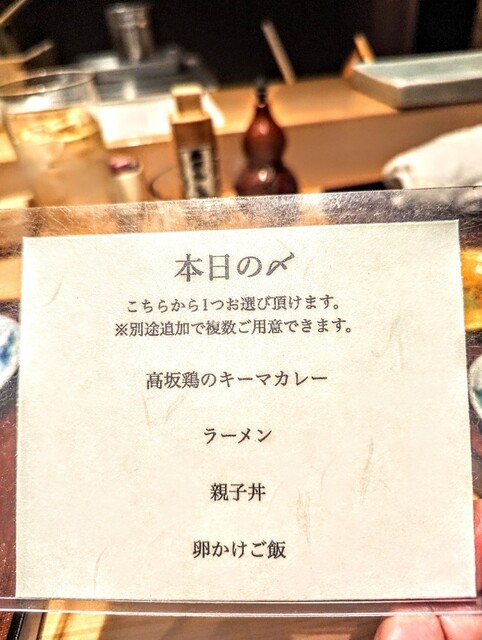 本日の〆
こちらから1つお選び頂けます。
※別途追加で複数ご用意できます。
高坂鶏のキーマカレー
ラーメン
親子丼
卵かけご飯